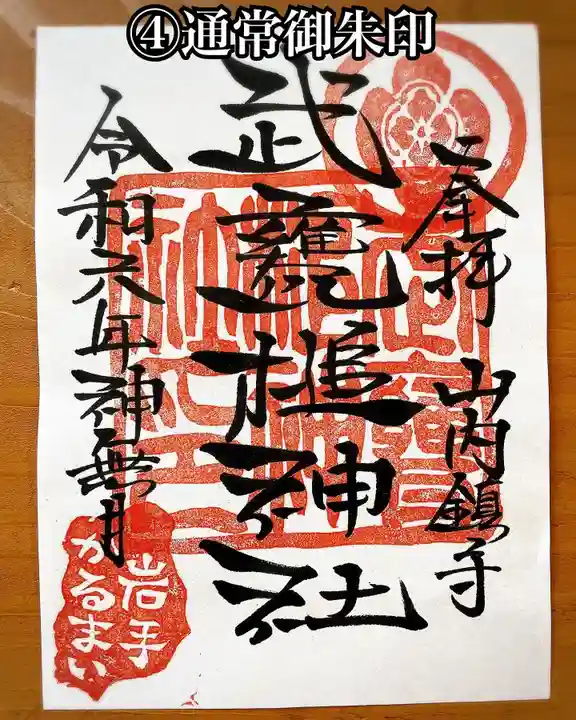 ④通常御朱印
奉拝 山内鎮守
武甕槌神社
令和六年神無月
岩手
かるまい